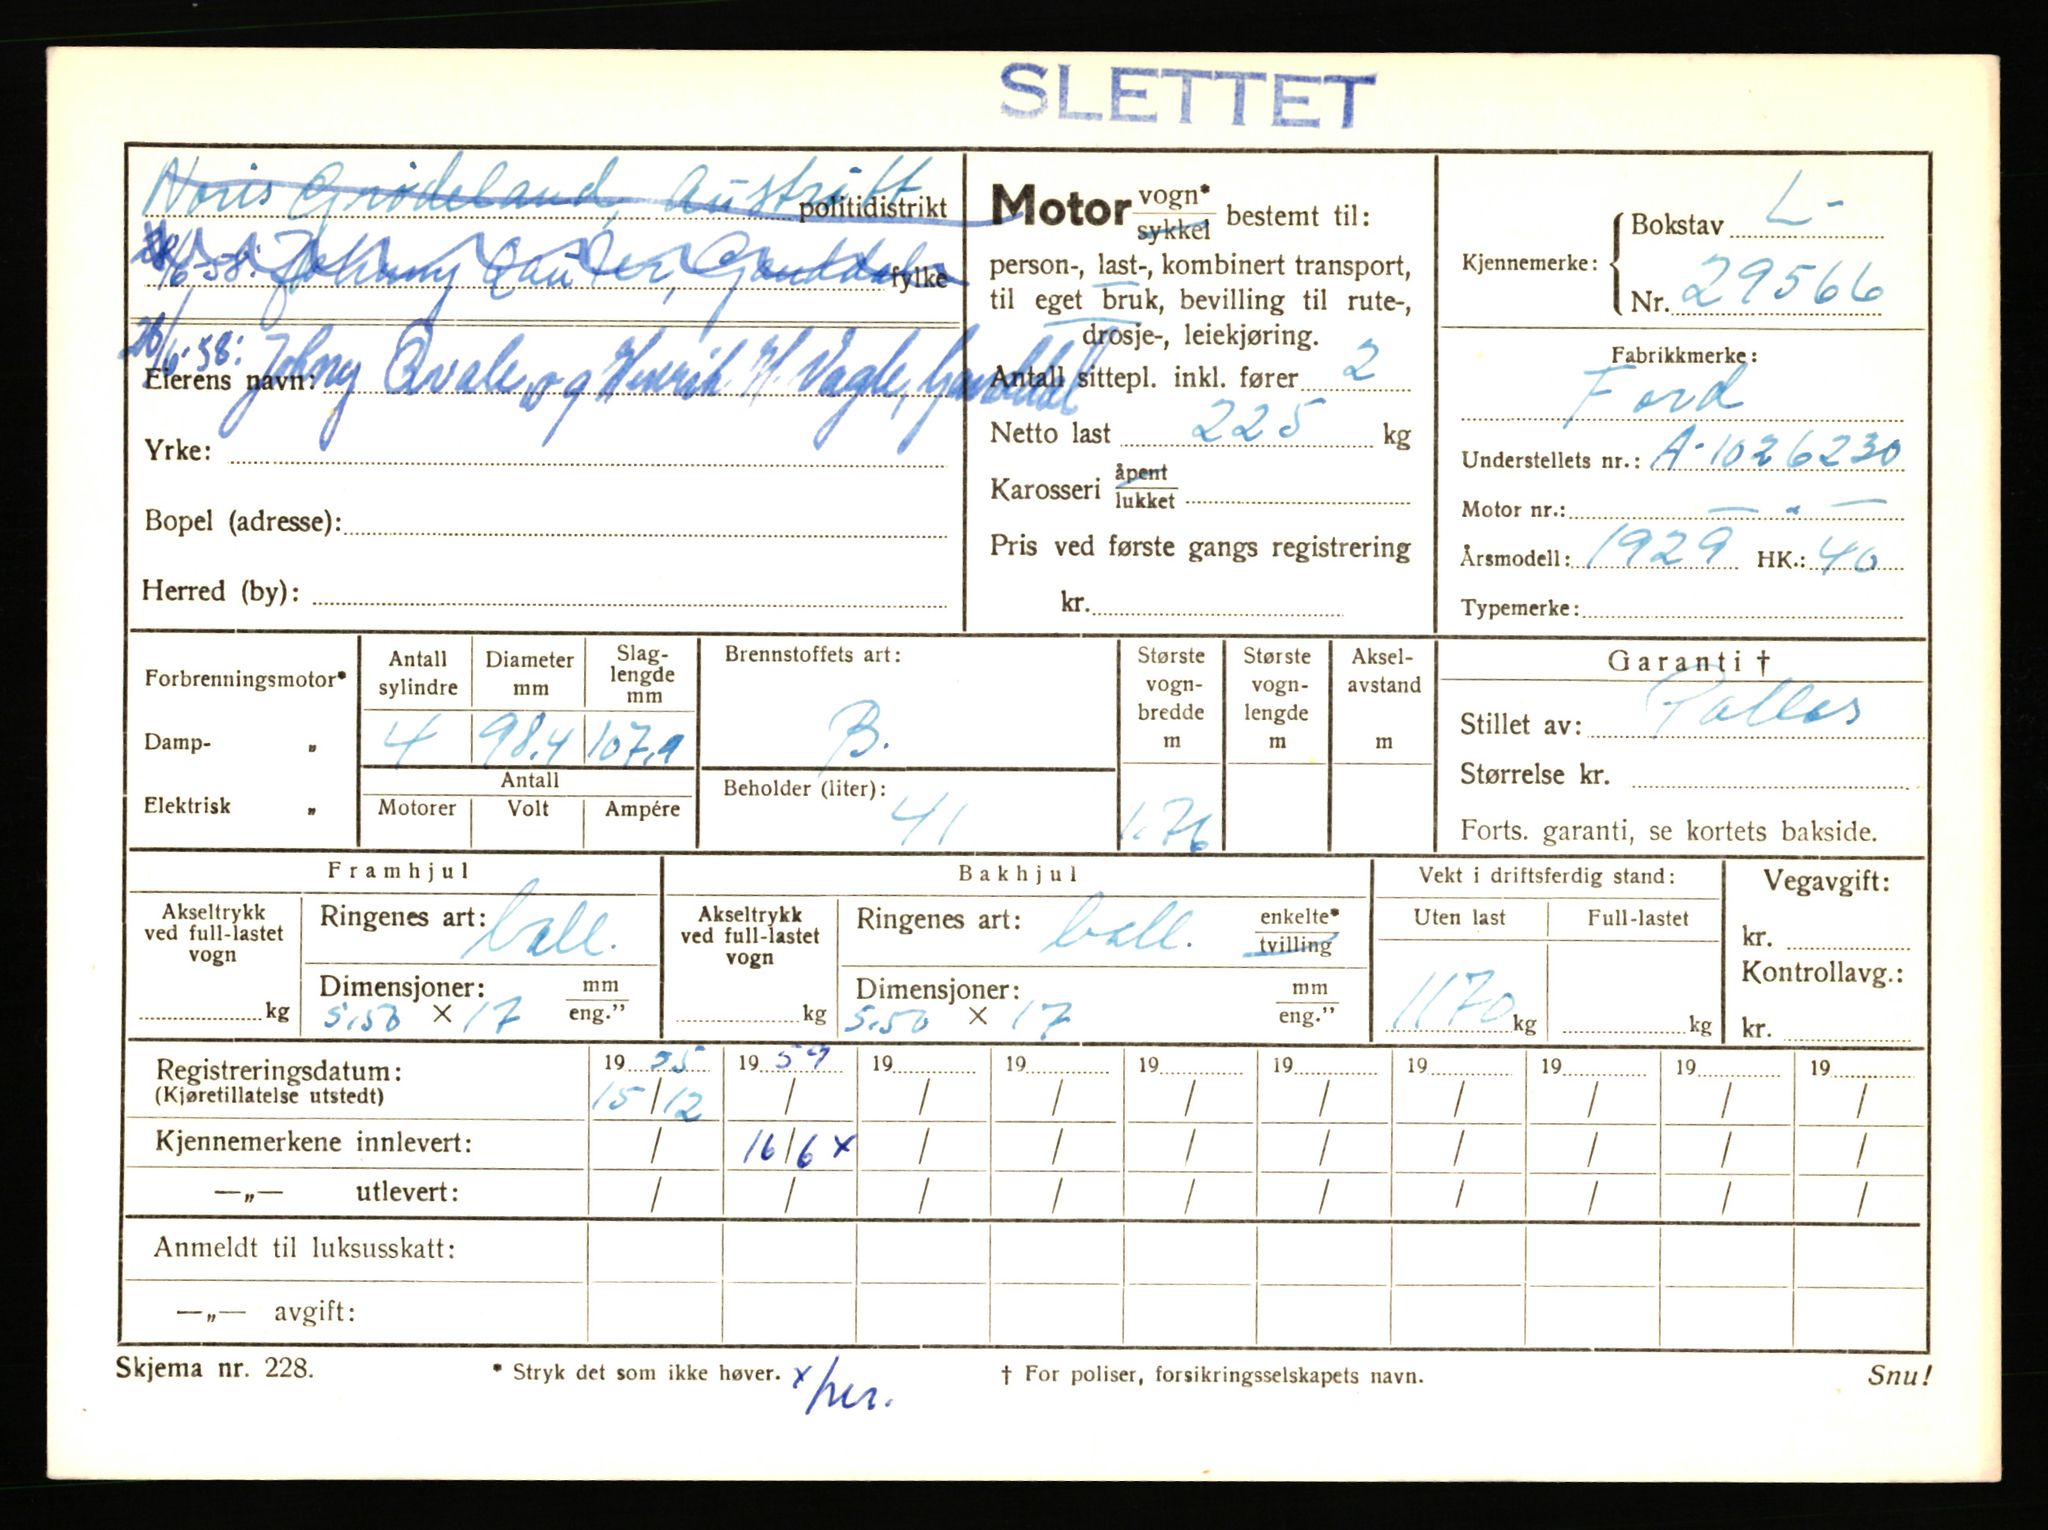 SLETTET
Noris Grødeland, Austrått
politidistrikt
/6-58: Johnny
fylke
26/6-58: Johny Qvale og Henrik H. Vagle, Ganddal
Eierens navn:
Yrke:
Bopel (adresse):
Herred (by):
Motor vogn* sykkel bestemt til:
person-, last-, kombinert transport,
til eget bruk, bevilling til rute-,
drosje-, leiekjøring.
Antall sittepl. inkl. fører 2
Netto last 225 kg
Karosseri åpent lukket
Pris ved første gangs registrering
kr.
Kjennemerke: Bokstav L-
Nr. 29566
Fabrikkmerke:
Ford
Understellets nr.: A-1026230
Motor nr.: — " —
Årsmodell: 1929 HK.: 40
Typemerke:
Forbrenningsmotor*
Damp- „
Elektrisk „
Antall sylindre Diameter mm Slag-lengde mm
4 98,4 107,9
Antall
Motorer Volt Ampére
Brennstoffets art:
B.
Beholder (liter):
41
Største vogn-bredde m
1.76
Største vogn-lengde m
Aksel-avstand m
Garanti †
Stillet av: Pallas
Størrelse kr.
Forts. garanti, se kortets bakside.
Framhjul
Akseltrykk ved full-lastet vogn
kg
Ringenes art: ball.
Dimensjoner: mm eng."
5,50 × 17
Bakhjul
Akseltrykk ved full-lastet vogn
kg
Ringenes art: ball. enkelte* tvilling
Dimensjoner: mm eng."
5,50 × 17
Vekt i driftsferdig stand:
Uten last Full-lastet
1170 kg kg
Vegavgift:
kr.
Kontrollavg.:
kr.
Registreringsdatum: 19 55 19 59 19 19 19 19 19 19 19 19
(Kjøretillatelse utstedt) 15/12 / / / / / / / / /
Kjennemerkene innlevert: / 16/6 x / / / / / / / /
—„— utlevert: / / / / / / / / / /
Anmeldt til luksusskatt:
—„— avgift:
Skjema nr. 228. * Stryk det som ikke høver. x/her. † For poliser, forsikringsselskapets navn. Snu!